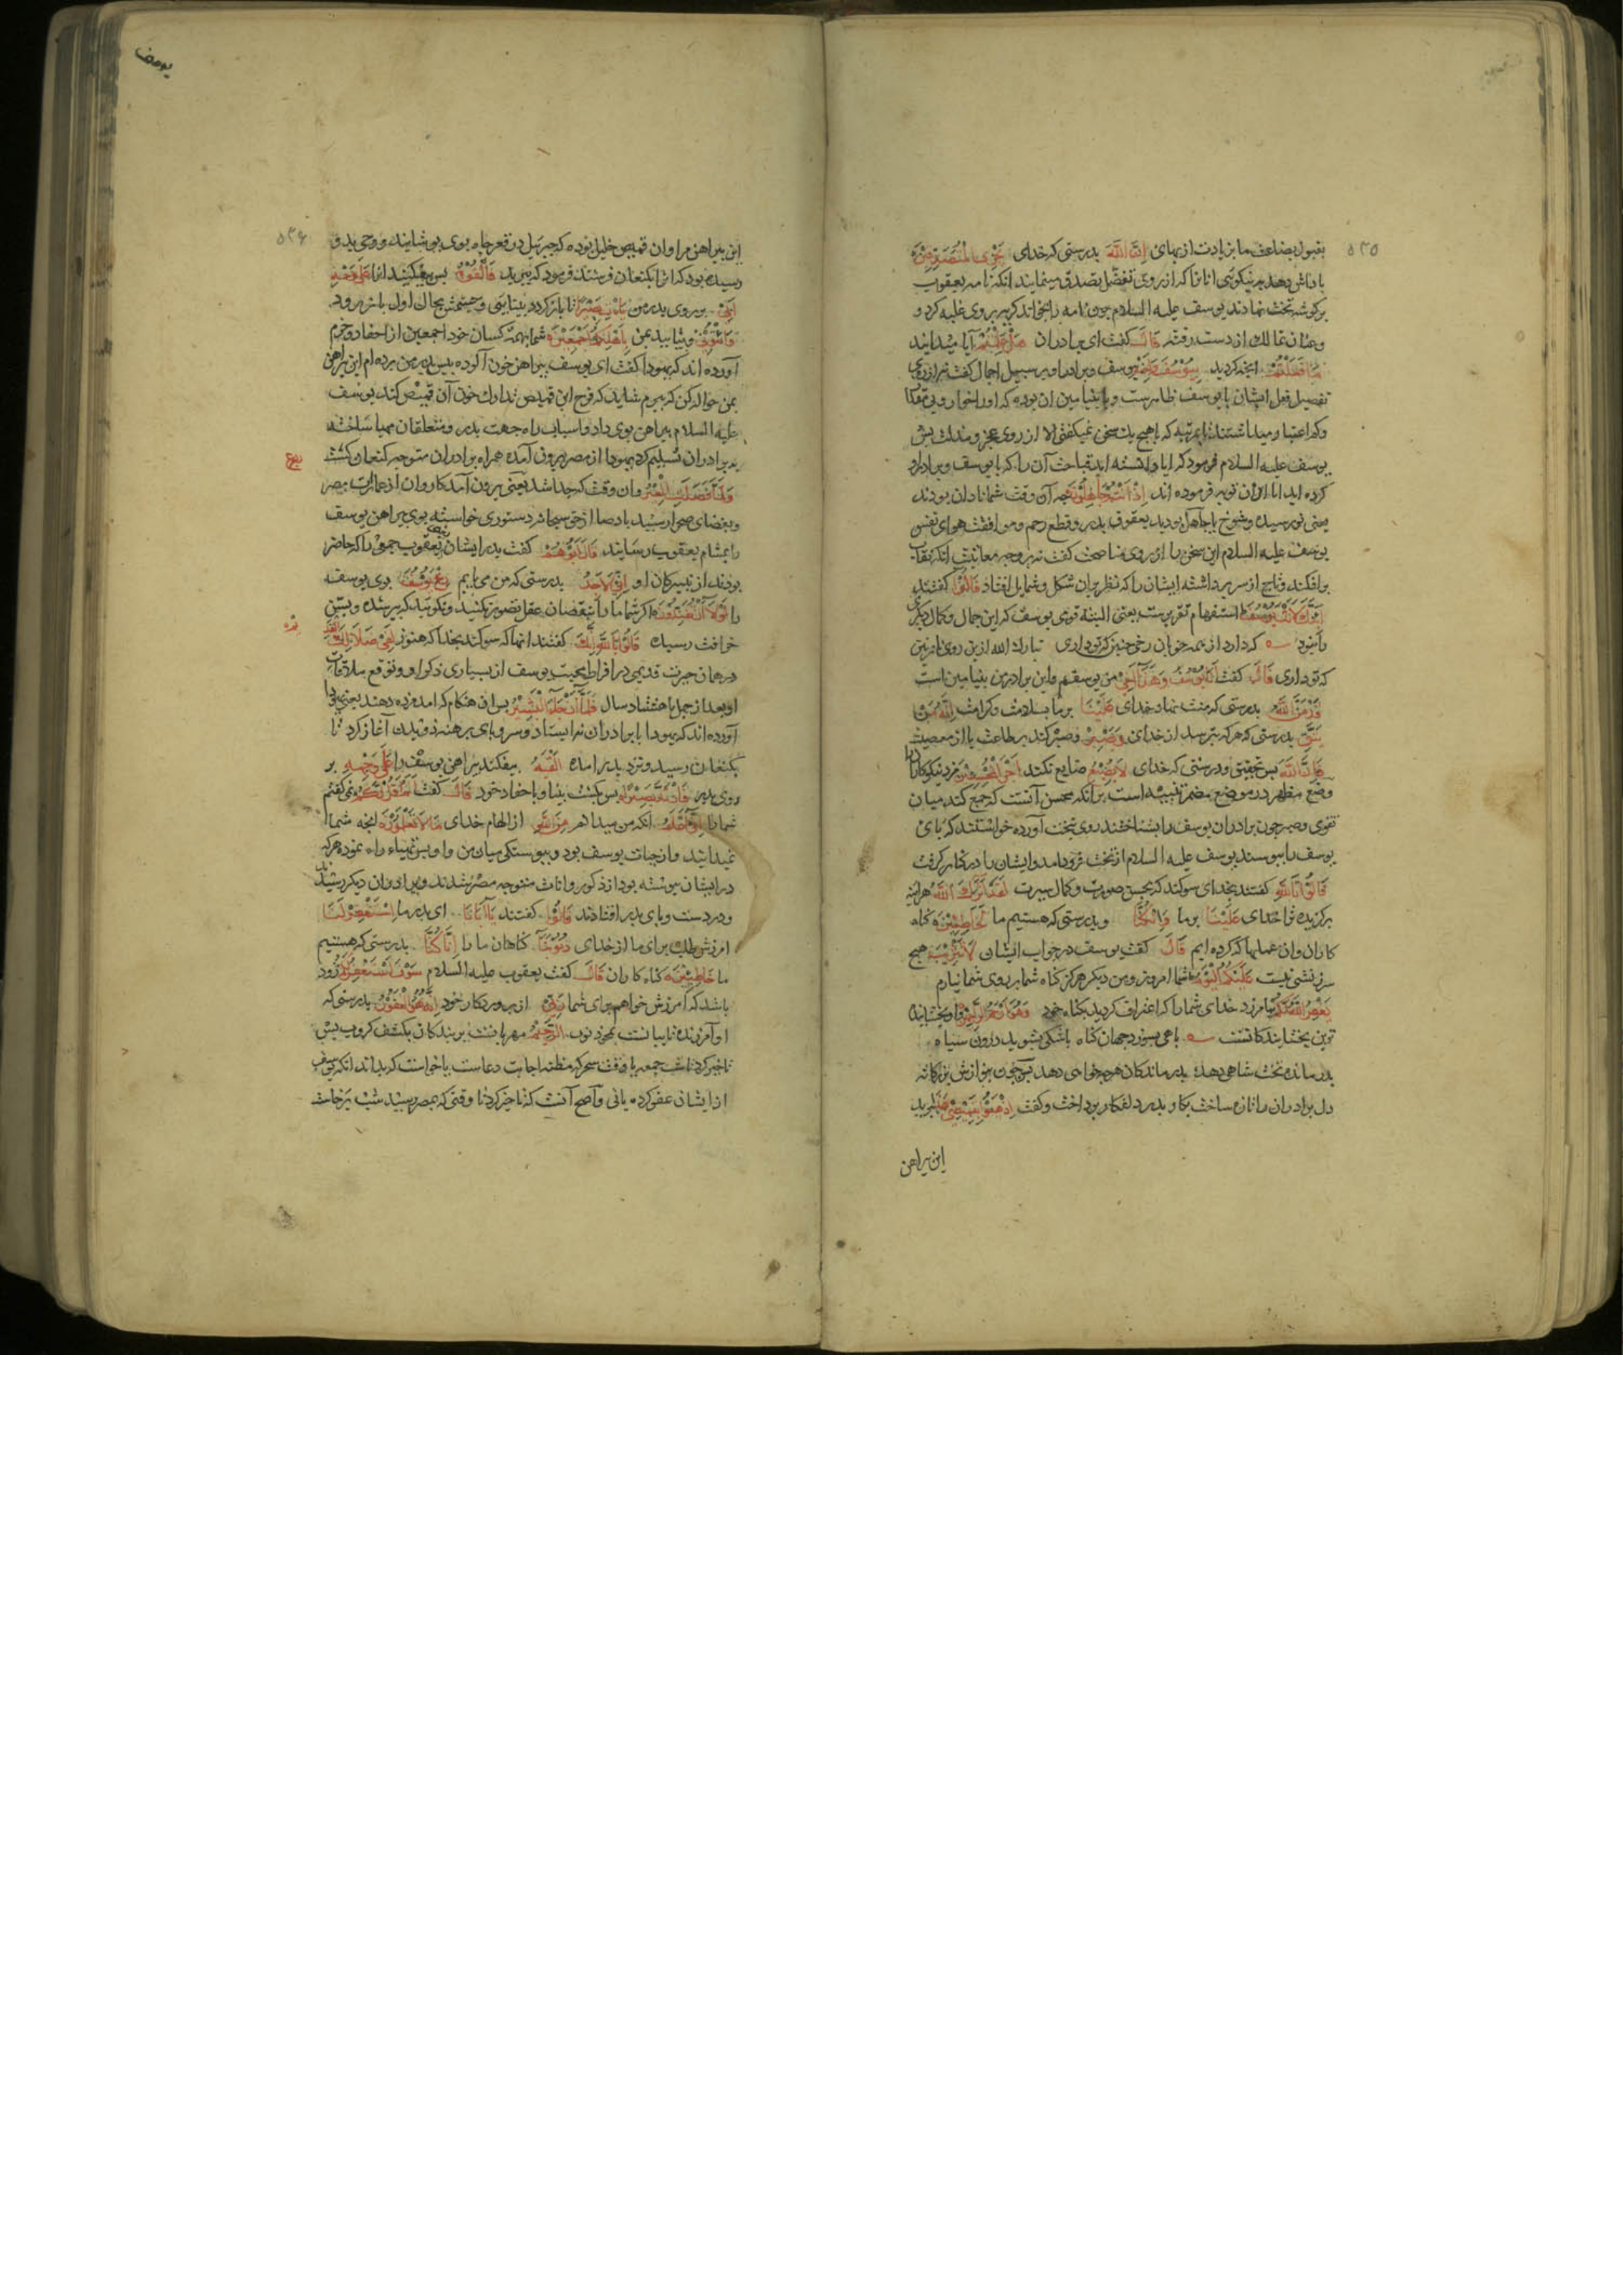 ٥٣٥
بقبول بضاعت ما بزیادت از بهای اِنَّ اللّٰهَ بدرستی که خدای یَجْزِی الْمُتَصَدِّقِیْنَ
پاداش دهد بنیکویی آنانرا که از روی تفضل تصدق مینمایند آنکه نامه یعقوب
بر گوشه تخت نهادند یوسف علیه السلام چون نامه را بخواند گریه بر وی غلبه کرد و
و عنان تمالک از دست رفته قَالَ گفت ای برادران هَلْ عَلِمْتُمْ آیا میدانید
مَا فَعَلْتُمْ آنچه کردید بِیُوْسُفَ وَاَخِیْهِ بیوسف و برادر او بر سبیل اجمال گفت نه از روی
تفصیل فعل ایشان با یوسف ظاهرست و با بنیامین آن بوده که او را خوار و بی مقدار
و کم اعتبار میداشتند بمرتبه که با هیچ یک سخن نمیگفتی الا از روی عجز و مذلت پس
یوسف علیه السلام فرمود که آیا دانسته اید قباحت آن را که با یوسف و برادر او
کرده اید اما از آن توبه فرموده اند اِذْ اَنْتُمْ جَاهِلُوْنَ چه آن وقت شما نادان بودند
یعنی نورسیده و شوخ یا جاهل بودید بعقوق پدر و قطع رحم و موافقت هوای نفس
یوسف علیه السلام این سخن را از روی مناصحت گفت نه بر وجه معاتبت آنکه نقاب
بر افکند و تاج از سر برداشته ایشان را که نظر بران شکل و شمایل افتاد قَالُوْا گفتند
اَئِنَّكَ لَاَنْتَ یُوْسُفُ استفهام تقریرست یعنی البته تویی یوسف که این جمال و کمال دیگری
را نبود که دارد از همه خوبان رخی چنین که تو داری تبارک الله ازین روی نازنین
که تو داری قَالَ گفت اَنَا یُوْسُفُ وَهٰذَا اَخِیْ من یوسفم و این برادر من بنیامین است
قَدْ مَنَّ اللّٰهُ بدرستی که منت نهاد خدای عَلَیْنَا بر ما بسلامت و کرامت اِنَّهُ مَنْ
یَتَّقِ بدرستی که هر که بترسد از خدای وَیَصْبِرْ و صبر کند بر طاعت یا از معصیت
فَاِنَّ اللّٰهَ پس بتحقیق و درستی که خدای لَا یُضِیْعُ ضایع نکند اَجْرَ الْمُحْسِنِیْنَ مزد نیکوکارانرا
وضع مظهر در موضع مضمر تنبیه است برآنکه محسن آنست که جمع کند میان
تقوی و صبر چون برادران یوسف را بشناختند روی بتخت آورده خواستند که پای
یوسف را ببوسند یوسف علیه السلام از تخت فرود آمد و ایشان را در کنار گرفت
قَالُوْا تَاللّٰهِ گفتند بخدای سوگند که بحسن صورت و کمال سیرت لَقَدْ اٰثَرَكَ اللّٰهُ هر آینه
برگزیده ترا خدای عَلَیْنَا بر ما وَاِنْ كُنَّا و بدرستی که هستیم ما لَخَاطِئِیْنَ گناه
کاران و آن عملها که کرده ایم قَالَ گفت یوسف در جواب ایشان لَا تَثْرِیْبَ هیچ
سرزنشی نیست عَلَیْكُمُ الْیَوْمَ شما امروز و من دیگر هرگز گناه شما بر روی شما نیارم
یَغْفِرُ اللّٰهُ لَكُمْ بیامرزد خدای شما را که اعتراف کردید بگناه خود وَهُوَ اَرْحَمُ الرَّاحِمِیْنَ و او بخشاینده
ترین بخشایندگانست باهی بسوزد جهان گناه باشکی بشوید درون سیاه
بدرمانده تخت شاهی دهد بدرماندگان هرچه خواهی دهد چون بنوازش بزرگانه
دل برادران را تازه ساخت بکار پدر دلفکار پرداخت و گفت اِذْهَبُوْا بِقَمِیْصِیْ هٰذَا ببرید
این پیراهن
یوسف
٥٣٦
این پیراهن مرا و آن قمیص خلیل بوده که جبرئیل در قعر چاه بوی پوشانید و وحی بدو
رسیده بود که آنرا بکنعان فرستد فرمود که ببرید فَاَلْقُوْهُ پس بیفکنید آنرا عَلٰی وَجْهِ
اَبِیْ بر روی پدر من یَاْتِ بَصِیْرًا تا باز گردد بینایی و چشمش بحال اول باز رود
وَاْتُوْنِیْ و بیایید بمن بِاَهْلِكُمْ اَجْمَعِیْنَ شما بهمه کسان خود اجمعین از احفاد و خرم
آورده اند که یهودا گفت ای یوسف پیراهن خون آلوده پیش پدر من برده ام این پیراهن
بمن حواله کن که ببرم شاید که فرح این قمیص تدارک خون آن قمیص کند یوسف
علیه السلام پیراهن بوی داد و اسباب راه جهت پدر و متعلقان مهیا ساخته
به برادران تسلیم کرد یهودا از مصر بیرون آمده همراه برادران متوجه کنعان گشت
وَلَمَّا فَصَلَتِ الْعِیْرُ و آن وقت که جدا شد یعنی بیرون آمد کاروان از عمارت مصر
و بفضای صحرا رسید باد صبا از حق سبحانه دستوری خواسته بوی پیراهن یوسف
را بمشام یعقوب رسانید قَالَ اَبُوْهُمْ گفت پدر ایشان یعنی یعقوب جمعی را که حاضر
بودند از نبیرگان او اِنِّیْ لَاَجِدُ بدرستی که من می یابم رِیْحَ یُوْسُفَ بوی یوسف
را لَوْلَا اَنْ تُفَنِّدُوْنِ اگر شما ما را بنقصان عقل تصور نکنید و نگویید که پیر شده و بسن
خرافت رسیده قَالُوْا تَاللّٰهِ اِنَّكَ گفتند آنها که سوگند بخدا که هنوز لَفِیْ ضَلَالِكَ الْقَدِیْمِ
در همان حیرت قدیمی در افراط محبت یوسف از بسیاری ذکر او و توقع ملاقات
او بعد از چهل یا هشتاد سال فَلَمَّا اَنْ جَاءَ الْبَشِیْرُ پس آن هنگام که آمد مژده دهند یعنی یهودا
آورده اند که یهودا با برادران نه ایستاد و سر و پای برهنه دویدن آغاز کرد تا
بکنعان رسید و نزد پدر آمده اَلْقٰهُ بیفکند پیراهن یوسف را عَلٰی وَجْهِهِ بر
روی پدر فَارْتَدَّ بَصِیْرًا پس بگشت بینا و با احفاد خود قَالَ گفت اَلَمْ اَقُلْ لَكُمْ نمی گفتم
شما را اِنِّیْ اَعْلَمُ آنکه من میدانم مِنَ اللّٰهِ از الهام خدای مَا لَا تَعْلَمُوْنَ آنچه شما
نمیدانید و از حیات یوسف بود و پیوستگی میان من و او
در ایشان پیوسته بود از ذکور و اناث متوجه مصر شدند و برادران دیگر رسیدند
و در دست و پای پدر افتادند قَالُوْا گفتند یَا اَبَانَا ای پدر ما اسْتَغْفِرْ لَنَا
امرزش طلب برای ما از خدای ذُنُوْبَنَا گناهان ما را اِنَّا كُنَّا بدرستی که هستیم
ما خَاطِئِیْنَ گناه کاران قَالَ گفت یعقوب علیه السلام سَوْفَ اَسْتَغْفِرُ لَكُمْ زود
باشد که آمرزش خواهم برای شما رَبِّیْ از پروردگار خود اِنَّهُ هُوَ الْغَفُوْرُ بدرستی که
او آمرزنده تایبانست بمحو ذنوب الرَّحِیْمُ مهربانست بر بندگان بکشف کروب پس
تاخیر کرد تا شب جمعه یا وقت سحر که مظنه اجابت دعاست یا خواست که بداند آنکه یوسف
از ایشان عفو کرده یا نی و اصح آنست که تاخیر کرد تا وقتی که بمصر رسید شب برخاست